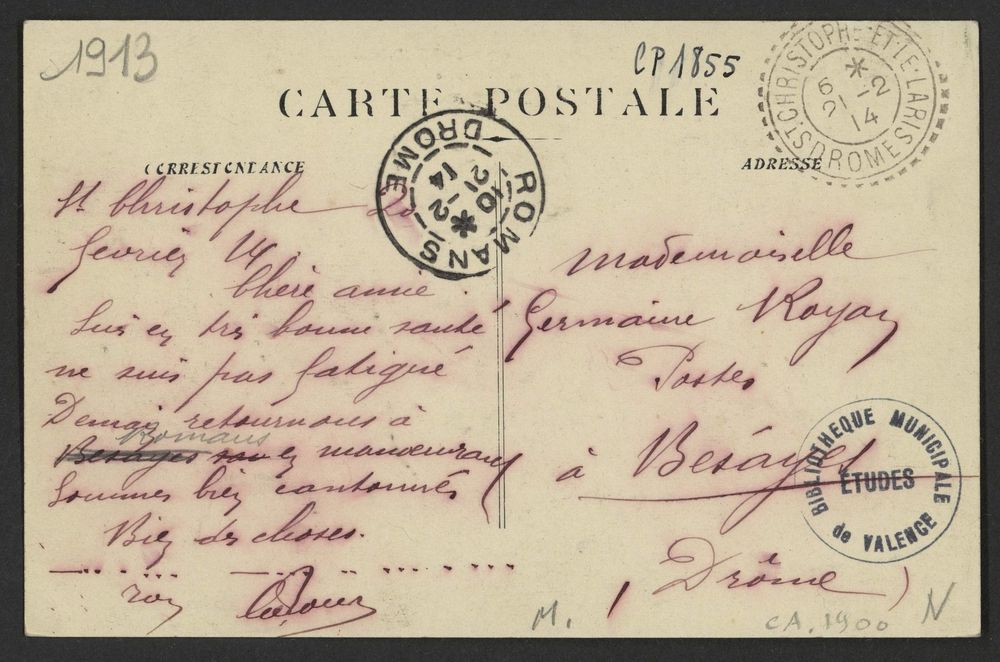 1913
CP1855
CARTE POSTALE
ST CHRISTOPHE-ET-LE-LARIS
DROME
6 * 2
21 -
14
ROMANS
DROME
10 * 2
21 -
14
CORRESPONDANCE
ADRESSE
St Christophe 20
Fevrier 14.
Chère amie
Suis en très bonne santé
ne suis pas fatigué
Demain retournons à
Romans
Besayes en manœuvrant
Sommes bien cantonnés
Bien des choses.
Mademoiselle
Germaine Royan
Postes
à Besayes
(Drôme)
BIBLIOTHEQUE MUNICIPALE
ETUDES
de VALENCE
M.
CA. 1900
N